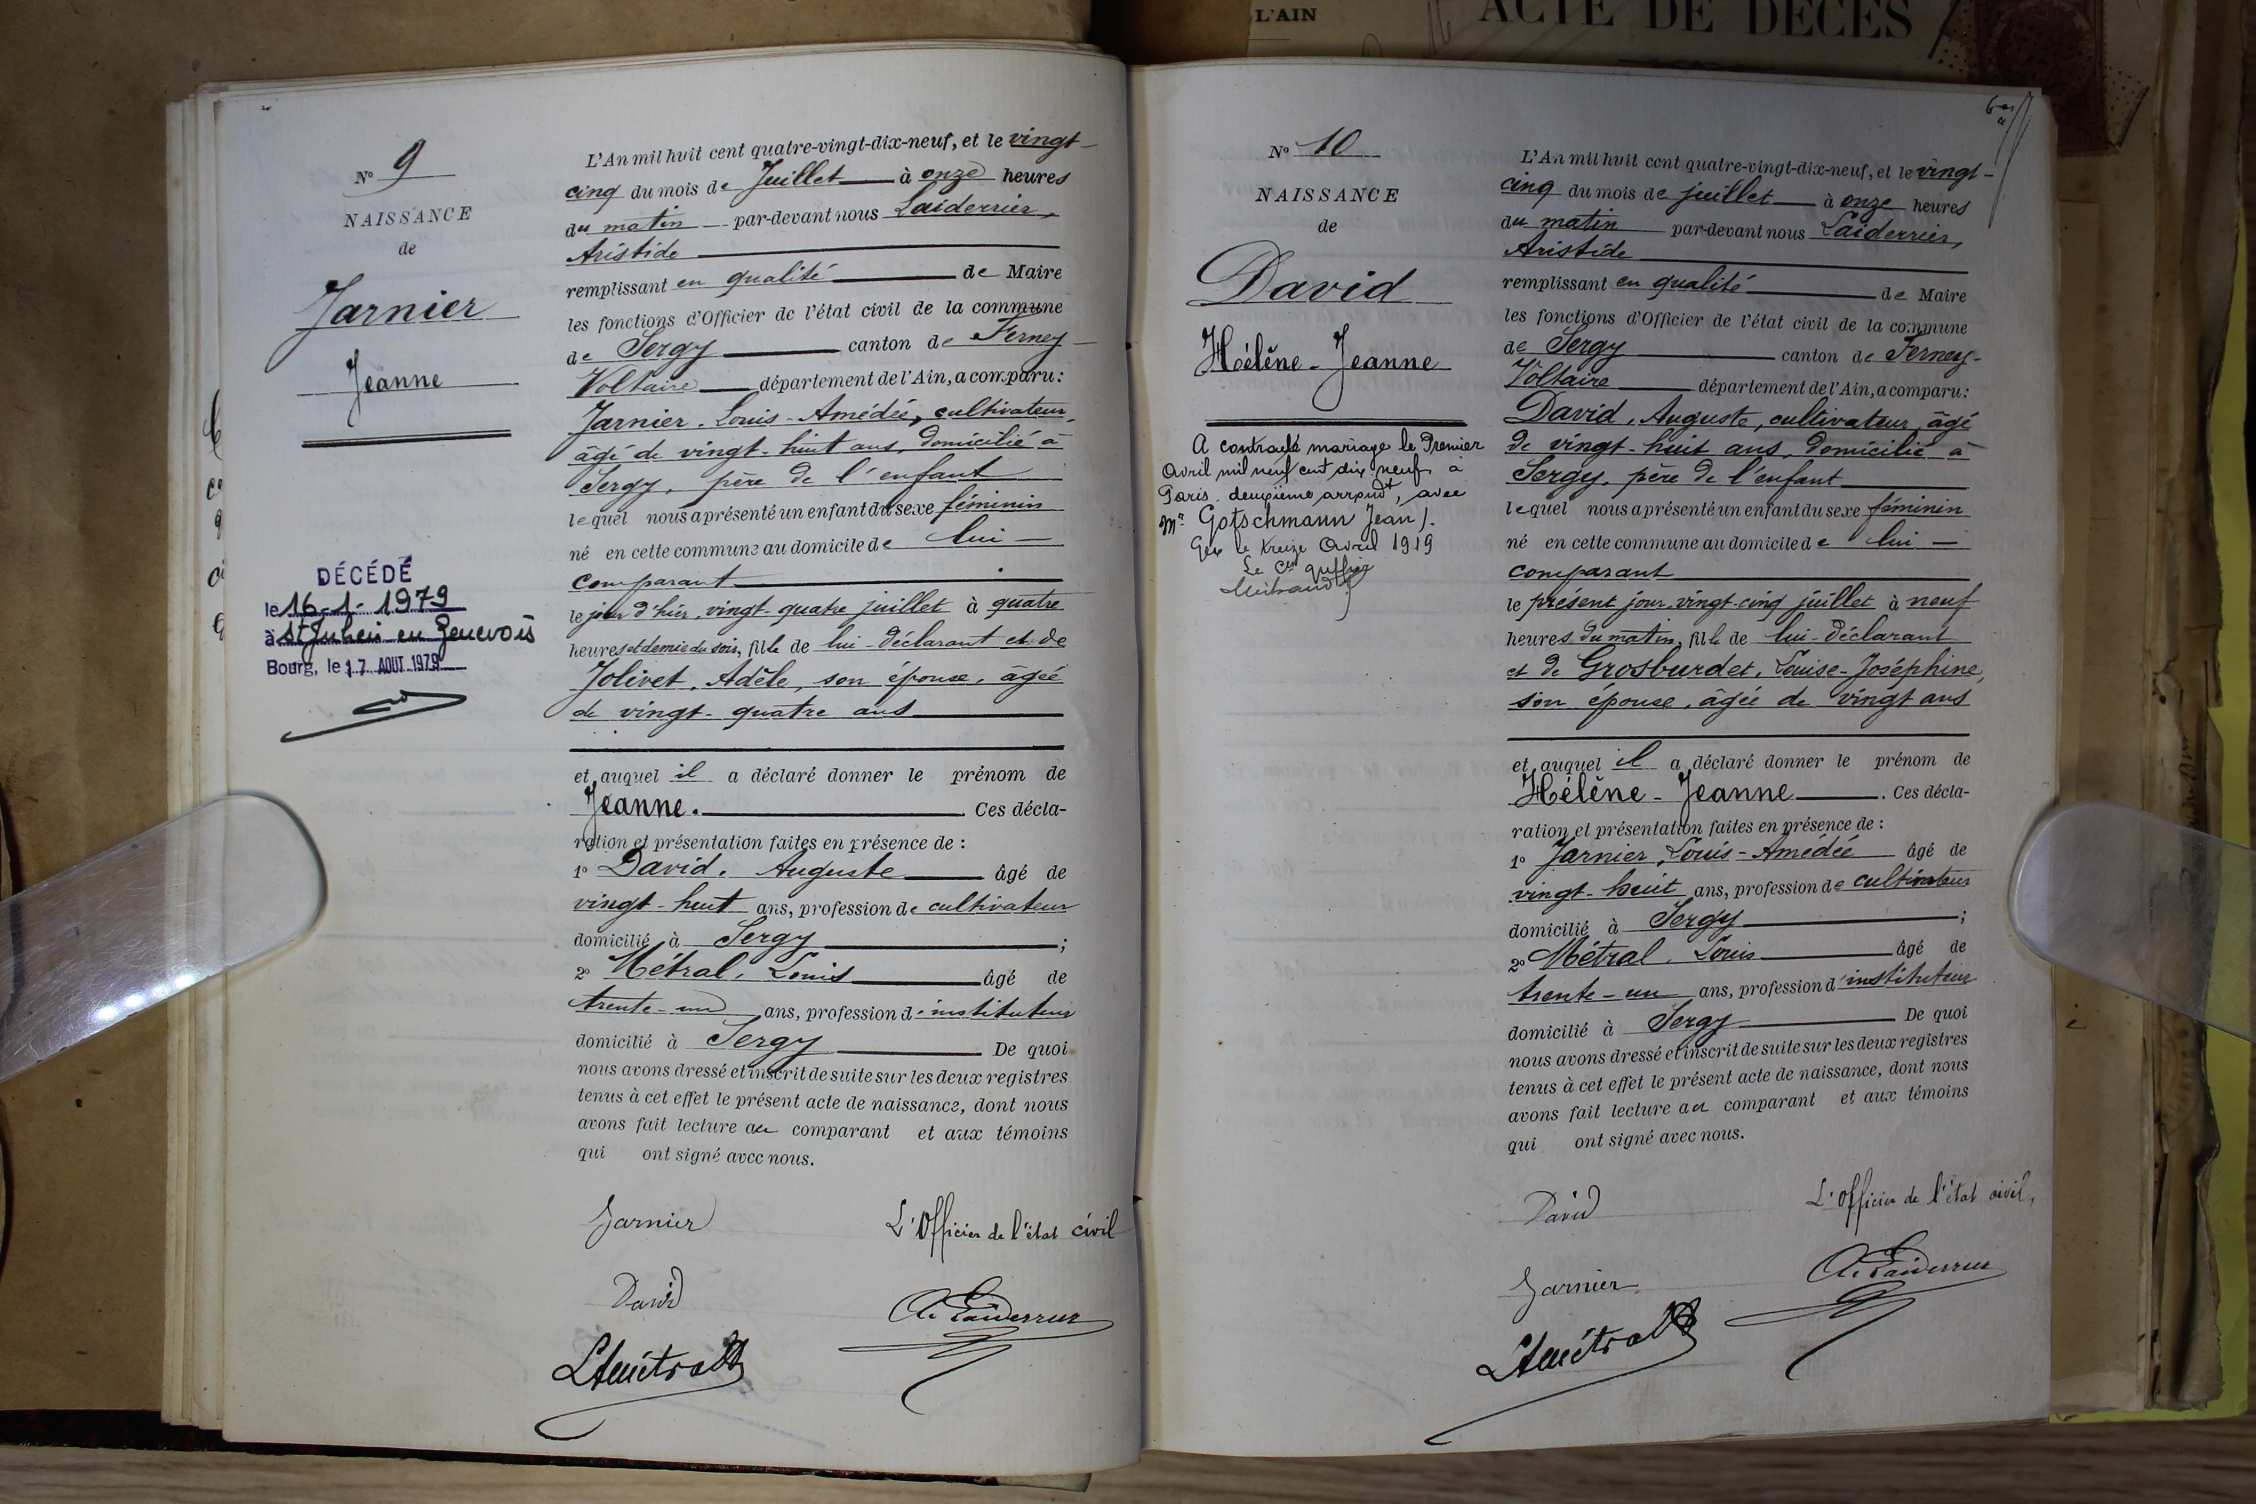 L'AIN
ACTE DE DÉCÈS
N° 9
NAISSANCE
de
Jarnier
Jeanne
DÉCÉDÉ
le 16-1-1979
à St Julien en Genevois
Bourg, le 17 AOUT 1979
L'An mil huit cent quatre-vingt-dix-neuf, et le vingt-
cinq du mois de Juillet à onze heures
du matin par-devant nous Laiderrier,
Aristide
remplissant en qualité de Maire
les fonctions d'Officier de l'état civil de la commune
de Sergy canton de Ferney-
Voltaire département de l'Ain, a comparu:
Jarnier, Louis-Amédée, cultivateur,
âgé de vingt-huit ans, domicilié à
Sergy, père de l'enfant
lequel nous a présenté un enfant du sexe féminin
né en cette commune au domicile de lui
comparant
le jour d'hier, vingt-quatre juillet à quatre
heures et demie du soir, fille de lui-déclarant et de
Jolivet, Adèle, son épouse, âgée
de vingt-quatre ans
et auquel il a déclaré donner le prénom de
Jeanne. Ces décla-
ration et présentation faites en présence de :
1° David, Auguste âgé de
vingt-huit ans, profession de cultivateur
domicilié à Sergy ;
2° Métral, Louis âgé de
trente-un ans, profession d'instituteur
domicilié à Sergy De quoi
nous avons dressé et inscrit de suite sur les deux registres
tenus à cet effet le présent acte de naissance, dont nous
avons fait lecture au comparant et aux témoins
qui ont signé avec nous.
Jarnier
L'Officier de l'état civil
David
A. Laiderrier
L. Métral
N° 10
NAISSANCE
de
David
Hélène-Jeanne
A contracté mariage le Premier
Avril mil neuf cent dix neuf à
Paris, deuxième arrondt, avec
Mr Gotschmann Jean /.
Gex le treize Avril 1919
Le
L'An mil huit cent quatre-vingt-dix-neuf, et le vingt-
cinq du mois de juillet à onze heures
du matin par-devant nous Laiderrier,
Aristide
remplissant en qualité de Maire
les fonctions d'Officier de l'état civil de la commune
de Sergy canton de Ferney-
Voltaire département de l'Ain, a comparu:
David, Auguste, cultivateur, âgé
de vingt-huit ans, domicilié à
Sergy, père de l'enfant
lequel nous a présenté un enfant du sexe féminin
né en cette commune au domicile de lui
comparant
le présent jour, vingt-cinq juillet à neuf
heures du matin, fille de lui-déclarant
et de Grosburdet, Louise-Joséphine,
son épouse, âgée de vingt ans
et auquel il a déclaré donner le prénom de
Hélène-Jeanne. Ces décla-
ration et présentation faites en présence de :
1° Jarnier, Louis-Amédée âgé de
vingt-huit ans, profession de cultivateur
domicilié à Sergy ;
2° Métral, Louis âgé de
trente-un ans, profession d'instituteur
domicilié à Sergy De quoi
nous avons dressé et inscrit de suite sur les deux registres
tenus à cet effet le présent acte de naissance, dont nous
avons fait lecture au comparant et aux témoins
qui ont signé avec nous.
David
L'Officier de l'état civil,
A. Laiderrier
Jarnier
L. Métral